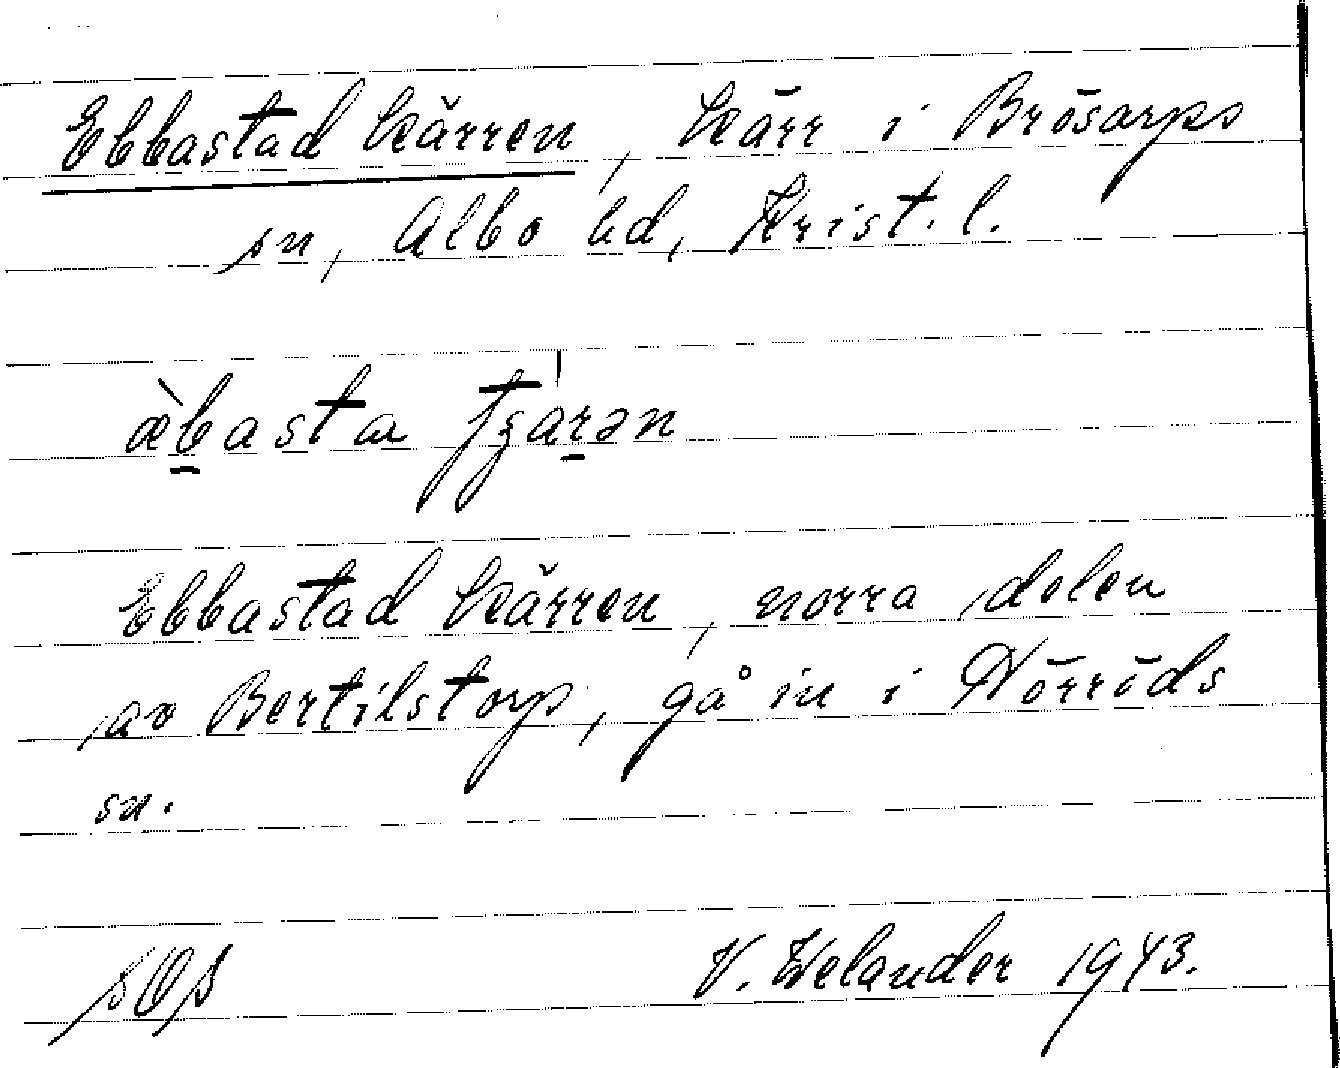 Ebbastad kärren, kärr i Brösarps
sn, Albo hd, Krist. l.
Ebbastad kärren, norra delen
av Bertilstorp, gå in i Nörröds
sn.
V. Welander 1943.